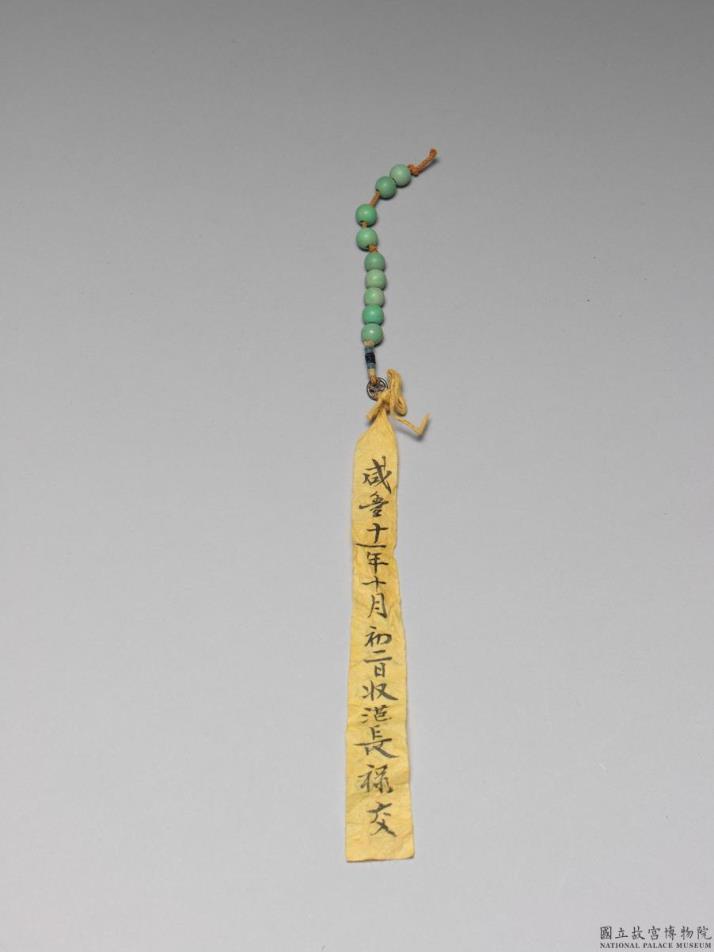 咸豐十一年十月初二日收范長祿交
國立故宮博物院
NATIONAL PALACE MUSEUM